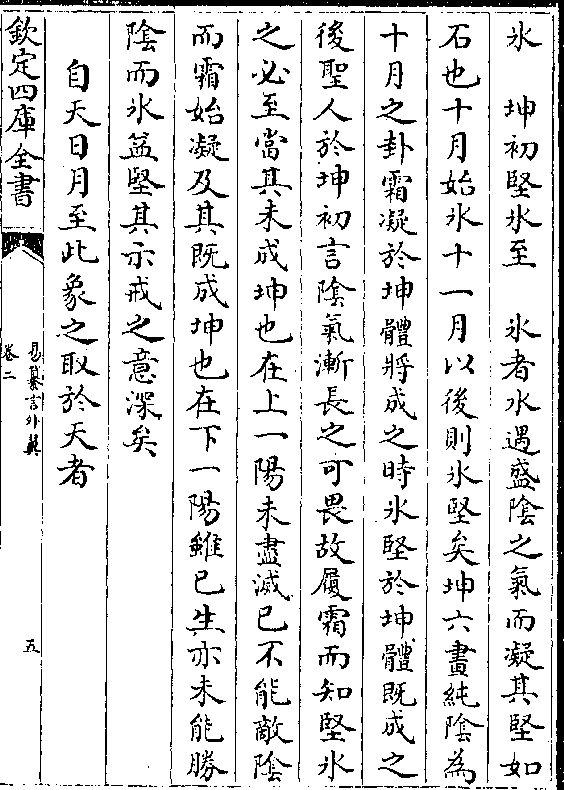 氷　坤初堅氷至　氷者水遇盛陰之氣而凝其堅如
石也十月始氷十一月以後則氷堅矣坤六畫純陰為
十月之卦霜凝於坤體將成之時氷堅於坤體既成之
後聖人於坤初言陰氣漸長之可畏故履霜而知堅氷
之必至當其未成坤也在上一陽未盡滅已不能敵陰
而霜始凝及其既成坤也在下一陽雖已生亦未能勝
陰而氷益堅其示戒之意深矣
自天日月至此象之取於天者
欽定四庫全書
易纂言外翼
卷二
五